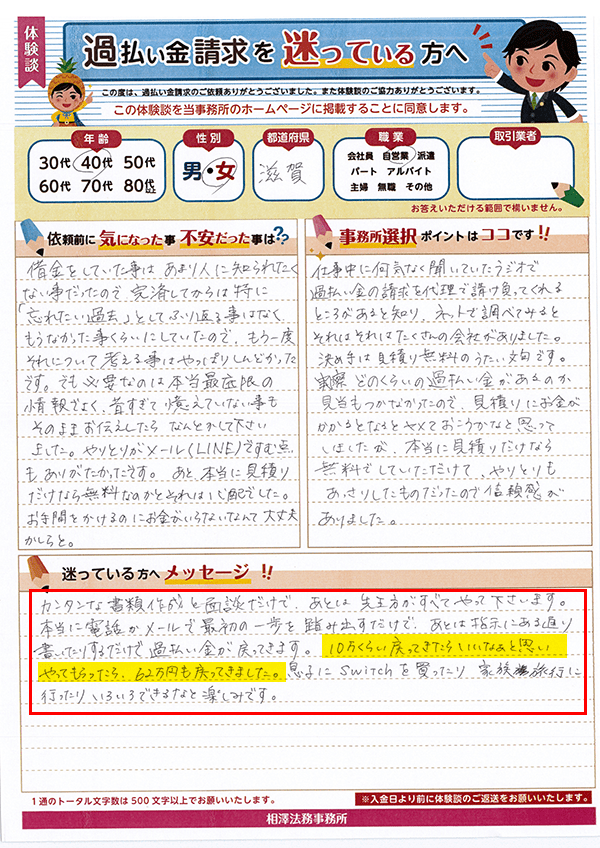 体験談
過払い金請求を迷っている方へ
この度は、過払い金請求のご依頼ありがとうございました。また体験談のご協力ありがとうございます。
この体験談を当事務所のホームページに掲載することに同意します。
年齢
30代 40代 50代
60代 70代 80代以上
性別
男・女
都道府県
滋賀
職業
会社員 自営業 派遣
パート アルバイト
主婦 無職 その他
取引業者
お答えいただける範囲で構いません。
依頼前に気になった事 不安だった事は??
借金をしていた事は あまり人に知られたく
ない事だったので、完済してからは特に
「忘れたい過去」としてふり返る事はなく
もうなかった事くらいにしていたので、もう一度
それについて考える事はやっぱりしんどかった
です。でも必要なのは本当最底限の
情報でよく、昔すぎて憶えていない事も
そのままお伝えしたら なんとかして下さい
ました。やりとりがメール(LINE)ですむ点
も、ありがたかったです。 あと、本当に見積り
だけなら無料なのかとそれは心配でした。
お手間をかけるのにお金がいらないなんて大丈夫
かしらと。
事務所選択ポイントはココです!!
仕事中に何気なく聞いていたラジオで
過払い金の請求を代理で請け負ってくれる
ところがあると知り、ネットで調べてみると
それはそれはたくさんの会社がありました。
決め手は見積り無料のうたい文句です。
実際どのくらいの過払い金があるのか
見当もつかなかったので、見積りにお金が
かかるとなるとやめておこうかなと思って
いましたが、本当に見積りだけなら
無料でしていただけて、やりとりも
あっさりしたものだったので信頼感が
ありました。
迷っている方へメッセージ!!
カンタンな書類作成と面談だけで、あとは先生方がすべてやって下さいます。
本当に電話かメールで最初の一歩を踏み出すだけで、あとは指示にある通り
書いたりするだけで過払い金が戻ってきます。10万くらい戻ってきたらいいなあと思い
やってもらったら、62万円も戻ってきました。息子にSwitchを買ったり 家族旅行に
行ったりいろいろできるなと楽しみです。
1通のトータル文字数は500文字以上でお願いいたします。
※入金日より前に体験談のご返送をお願いいたします。
相澤法務事務所